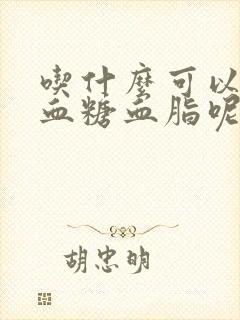 喫什麼可以
血糖血脂呢
胡忠明